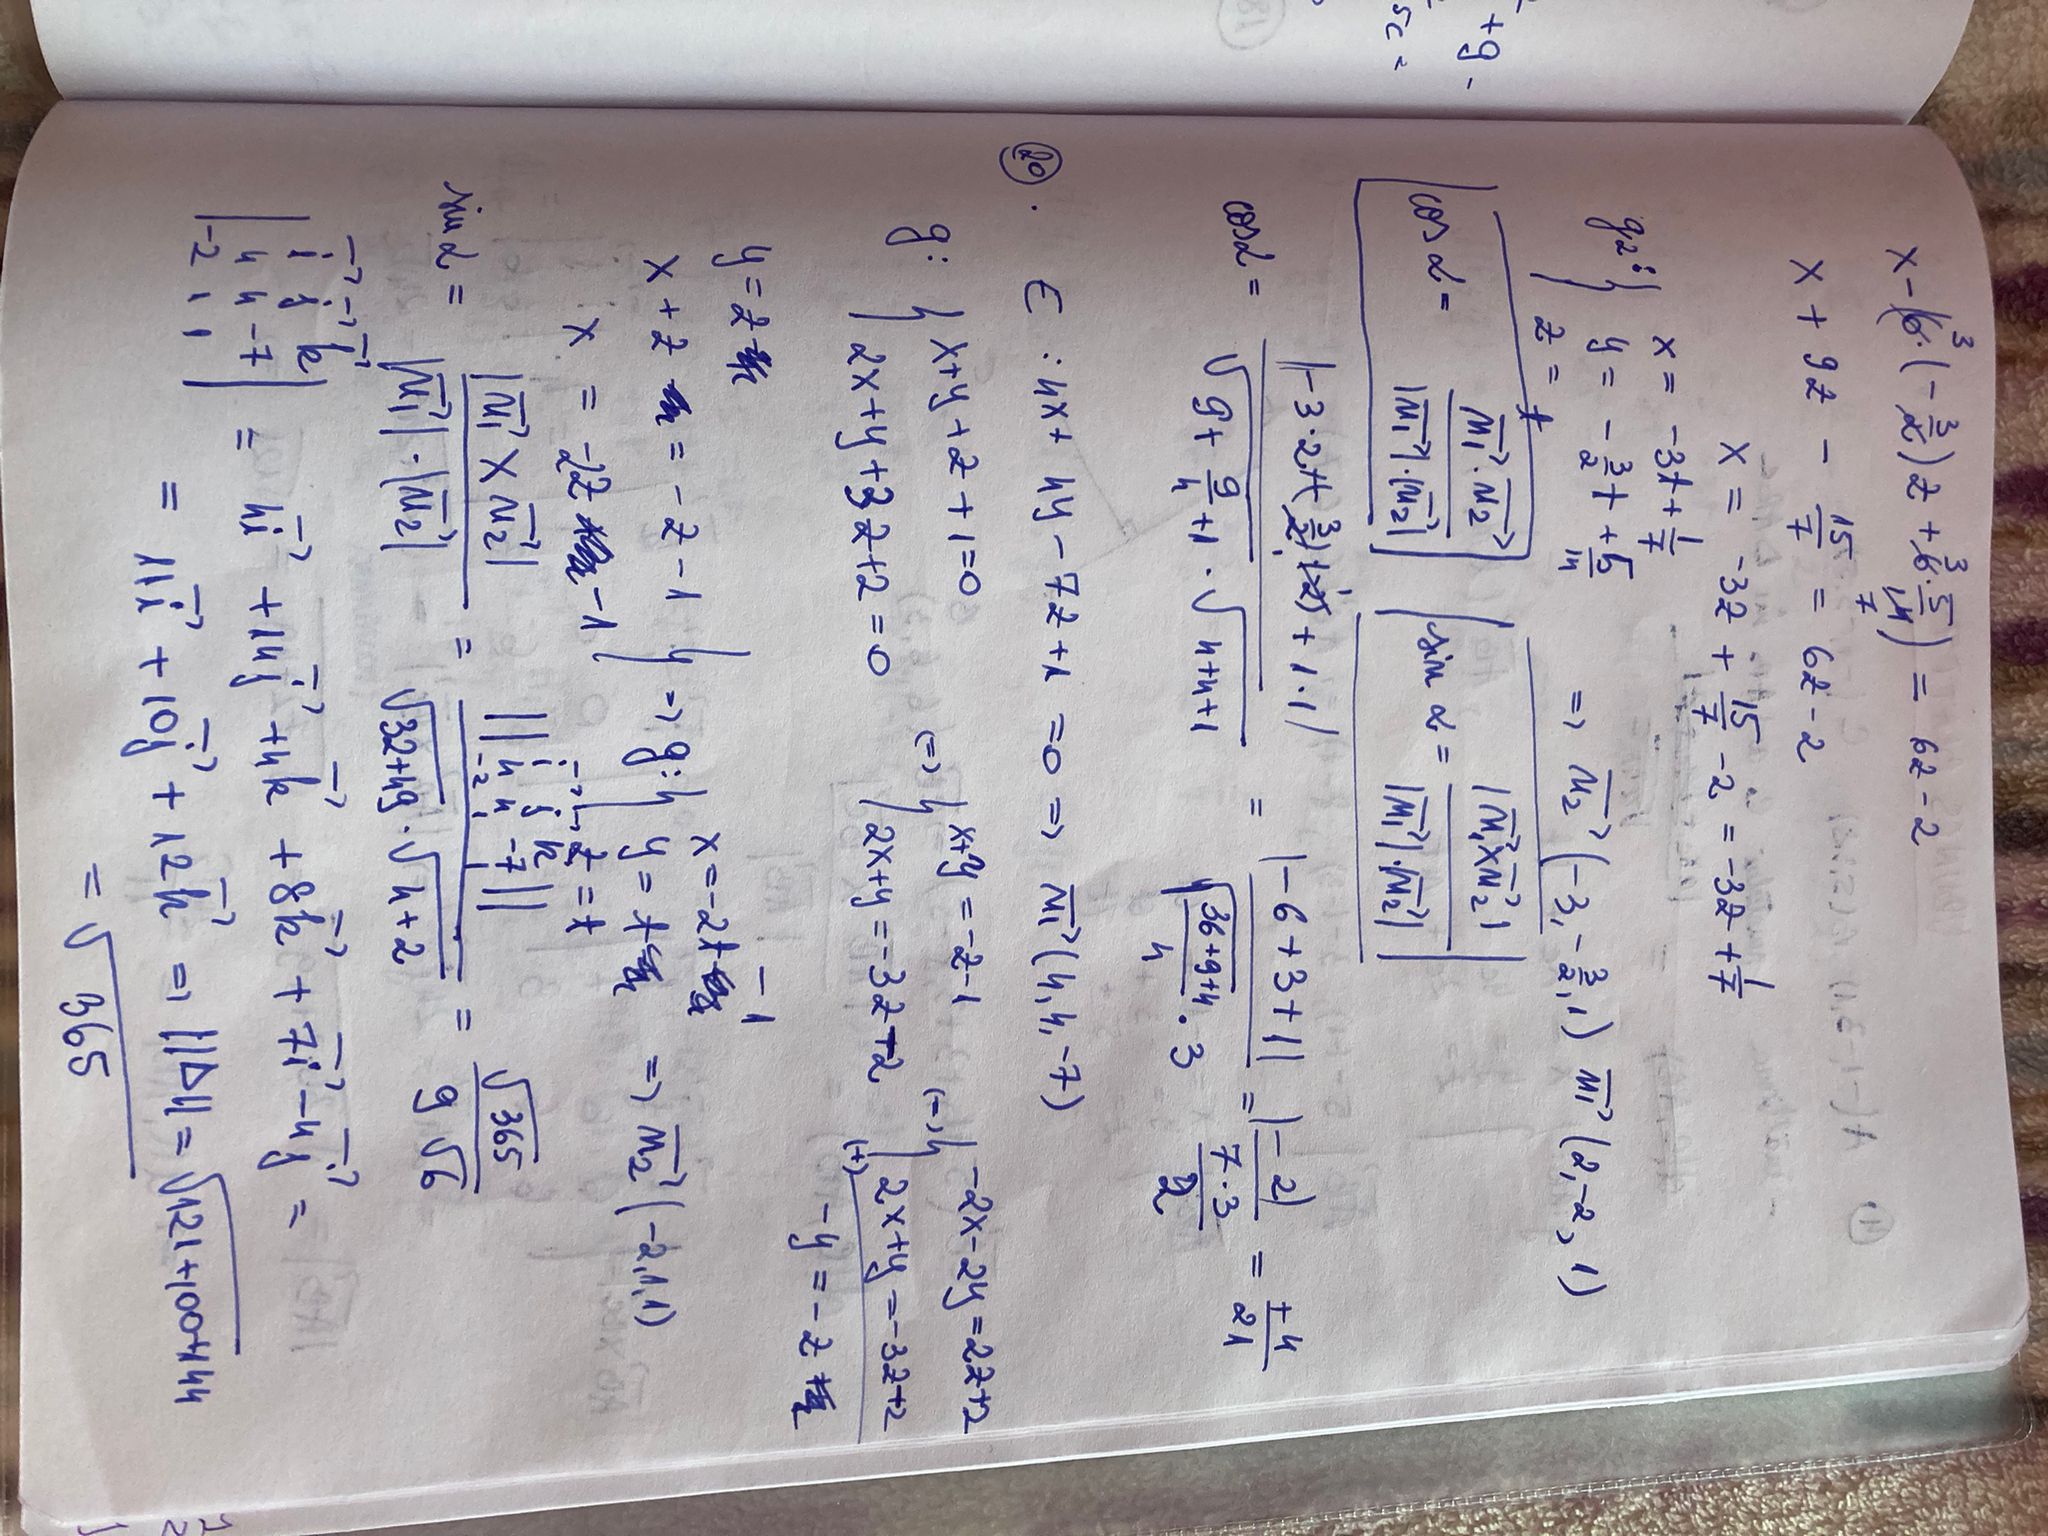 x - (6·(-3/2)z + 6·5/14) = 6z - 2
3 3 7
x + 9z - 15/7 = 6z - 2
x = -3z + 15/7 - 2 = -3z + 1/7
g2: { x = -3t + 1/7
y = -3/2 t + 5/14
z = t
=> u2 (-3, -3/2, 1) u1 (2, -2, 1)
cos α = u1 · u2 / |u1| · |u2|
sin α = |u1 × u2| / |u1| · |u2|
cos α = |-3·2 + (-3/2)(-2) + 1·1| / √(9 + 9/4 + 1) · √(4+4+1) = |-6+3+1| / √((36+9+4)/4) · 3 = |-2| / (7·3/2) = +4/21
20. E : 4x + 4y - 7z + 1 = 0 => u1 (4, 4, -7)
g: { x+y+z+1=0 (=) { x+y = -z-1 (=) { -2x-2y = 2z+2
2x+y+3z+2=0 2x+y = -3z-2 2x+y = -3z+2
(+) -y = -z
y = z
x + z = -z - 1
x = -2z - 1
=> g: { x = -2t - 1
y = t
z = t
=> u2 (-2, 1, 1)
sin α = |u1 × u2| / |u1| · |u2| = || i j k 4 4 -7 -2 1 1 || / √(32+49) · √(4+2) = √365 / 9√6
| i j k
4 4 -7
-2 1 1 | = 4i + 14j + 4k + 8k + 7i - 4j =
= 11i + 10j + 12k => ||Δ|| = √(121+100+144)
= √365
+9-
5c=
18